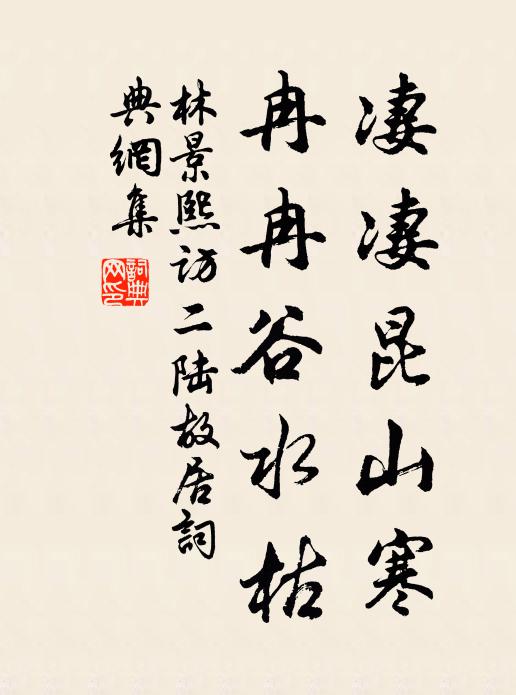 凄凄昆山寒
冉冉谷水枯
林景熙访二陆故居詞
典網集
詞典
网印